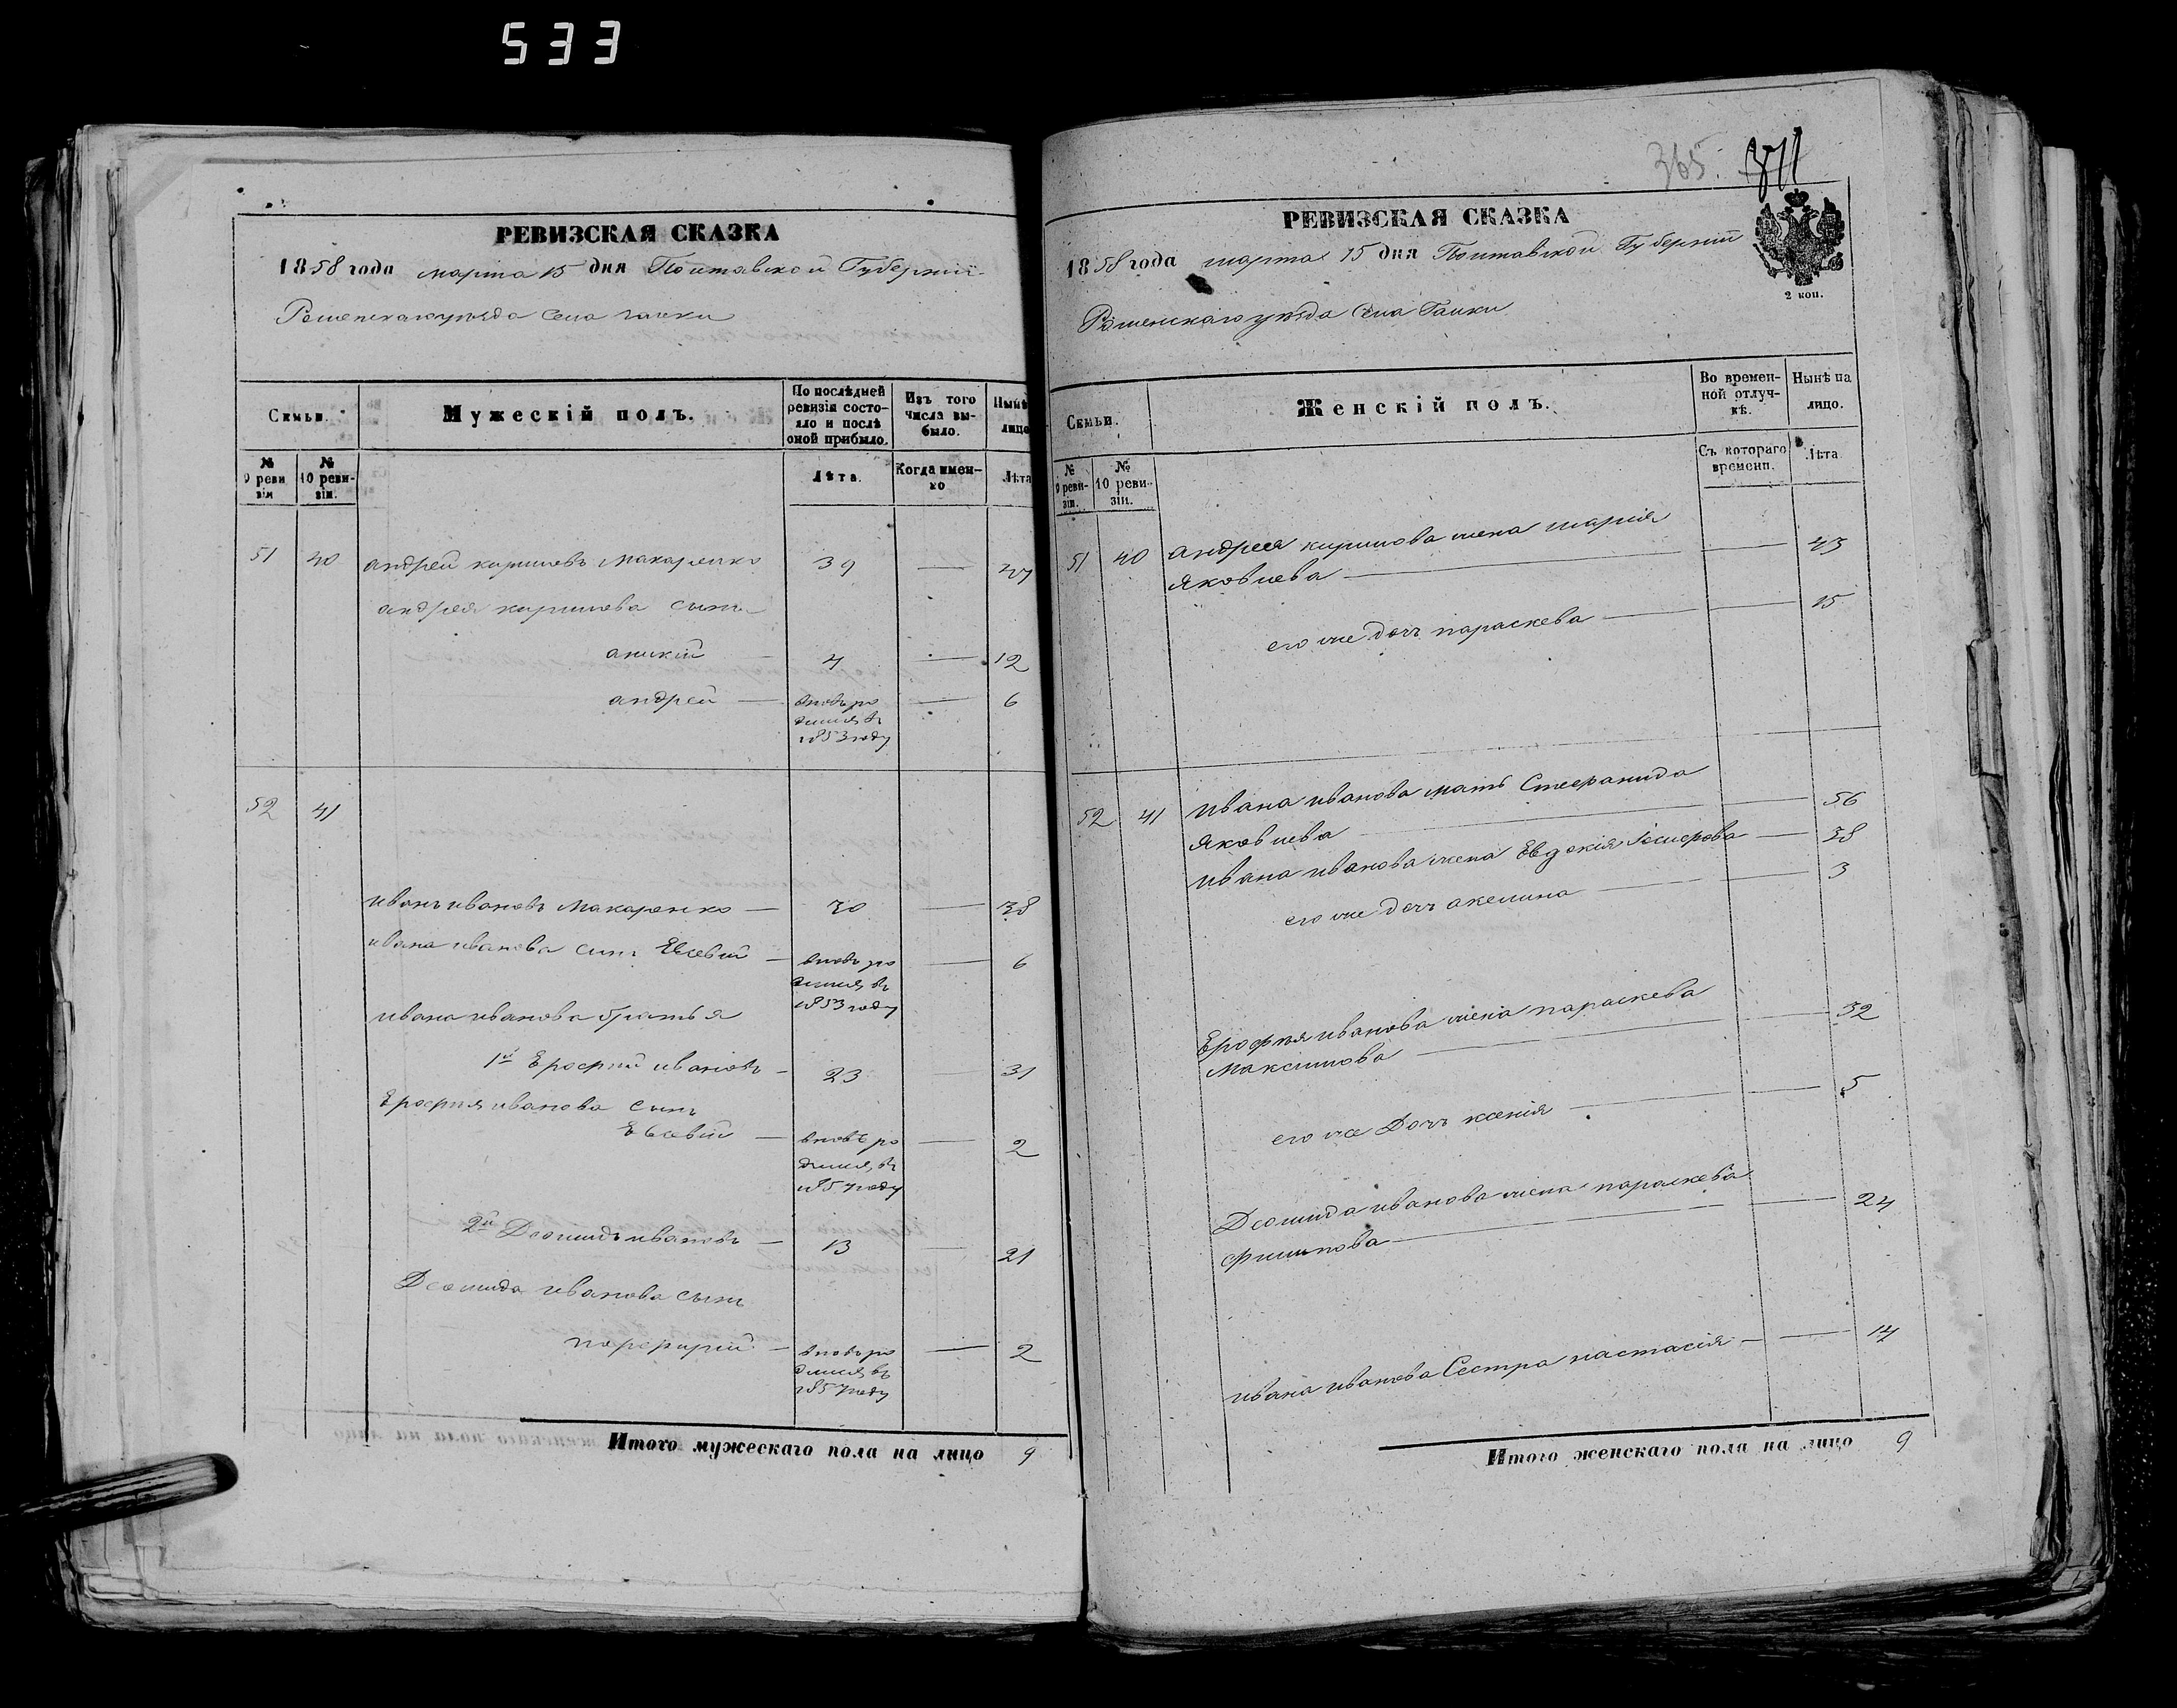 533
РЕВИЗСКАЯ СКАЗКА
1858 года марта 15 дня Полтавской Губерніи
Роменскаго уѣзда Села Галки
Семьи.
Мужескій полъ.
По послѣдней ревизіи состояло и послѣ оной прибыло.
Изъ того числа выбыло.
Нынѣ лицо
№ 9 ревизіи
№ 10 ревизіи.
Лѣта.
Когда именно
Лѣта
51 40 андрей кириловъ Макаренко 39 — 47
андрея кирилова сынъ
аникій — 4 — 12
андрей — вновь ро — 6
дился въ
1853 году
52 41
иванъ ивановъ Макаренко — 30 — 38
ивана иванова сынъ Евсевій — вновь ро — 6
дился въ
1853 году
ивана иванова братья
1й Ерофей ивановъ — 23 — 31
Ерофѣя иванова сынъ
Евсевій — вновь ро — 2
дился въ
1857 году
2й Деомидъ ивановъ — 13 — 21
Деомида иванова сынъ
порфирій — вновь ро — 2
дился въ
1857 году
Итого мужескаго пола на лицо 9
365. 371
РЕВИЗСКАЯ СКАЗКА
1858 года марта 15 дня Полтавской Губерніи
2 коп.
Роменскаго уѣзда Села Галки
Семьи.
Женскій полъ.
Во временной отлучкѣ.
Нынѣ на лицо.
№ 9 ревизіи.
№ 10 ревизіи.
Съ котораго времени.
Лѣта
51 40 андрея кирилова жена марія
яковлева — — 43
его же дочь параскева — — 15
52 41 ивана иванова мать Стефанида
яковлева — — 56
ивана иванова жена Евдокія — 38
его же дочь акелина — — 3
Ерофѣя иванова жена параскева
Максимова — — 32
его же Дочь ксенія — — 5
Деомида иванова жена параскева
филипова — — 24
ивана иванова Сестра настасія — — 17
Итого женскаго пола на лицо 9